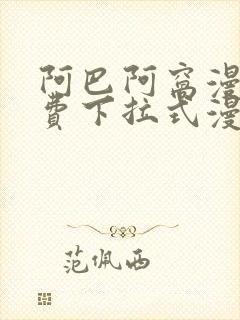 阿巴阿窩漫
費下拉式漫
范佩西